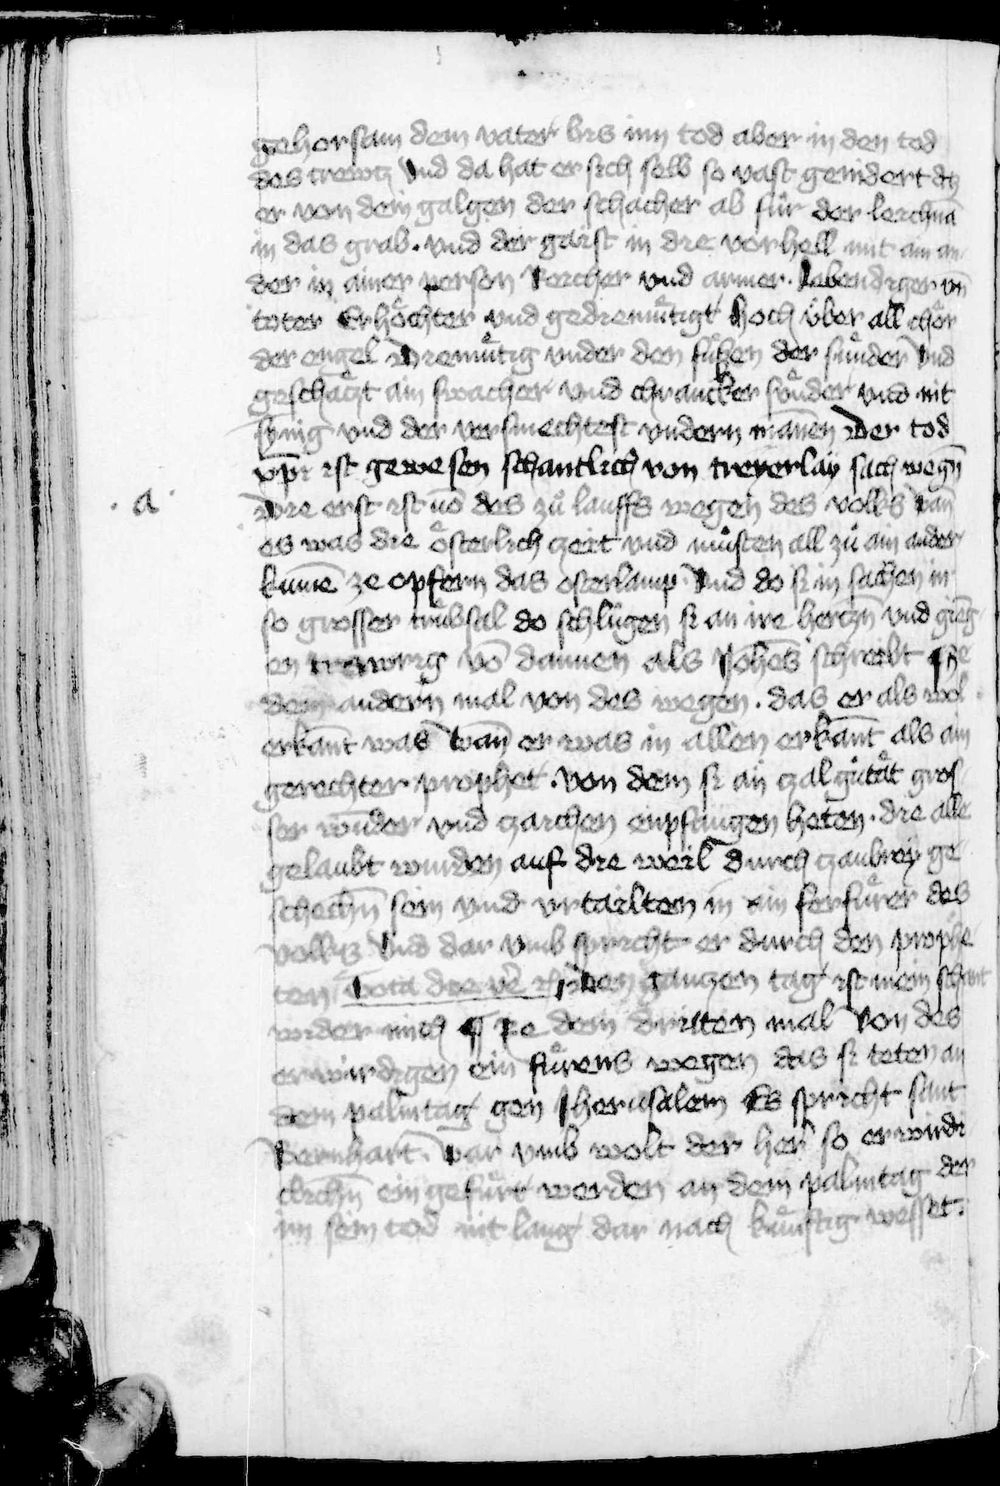 gehorsam dem vater bis inn tod aber in den tod
des crewtz Vnd da hat er sich selb so vast genidert dz
er von dem galgen der schacher ab fůr der leichnā
in das grab. vnd der gaist in die vorhell mit ain an
der in ainer person Reicher vnd armer. labendiger vn̄
toter Erhöchter vnd gediemůtigt hoch über all chör
der engel Diemůtig vnder den fůßen der sunder Vnd
geschäczt ain swacher vnd chrancker sunder vnd nit
vnd der versmechtest vndern mānen Der tod
xp̄i ist gewesen schantlich von treyerlay sach wegn̄
. a . Die erst ist vō des zů lauffs wegen des volks wan̄
es was die österlich czeit vnd můsten all zů ain ander
kumē ze opfern das osterlamp. Vnd do si in sachen in
so grosser trůbsal do schlůgen si an ire herczn̄ vnd gieng
en trawrig vō dannen als Joh̄es schreibt ¶ Ze
dem andern mal von des wegen. das er als wol
erkānt was wan̄ er was in allen erkānt als ain
gerechter prophet. von dem si an czal gůtät gros
ser wunder vnd czaichen enpfangen heten. die alle
gelaubt wurden auf die weil durch czaubrey ge
schechn̄ sein vnd vrtailten in ain ferfůrer des
volkz Vnd dar vmb spricht er durch den prophe
ten Tota die Den ganczen tag ist mein schant
wider mich ¶ Ze dem dritten mal Von des
erwirdigen ein fůrens wegen das si teten an
dem palmtag gen Jherusalem Es spricht sant
Bernhart. War vmb wolt der her so erwirdi
clichn̄ ein gefůrt werden an dem palmtag der
im sein tod nit lang dar nach kůnftig wesset.